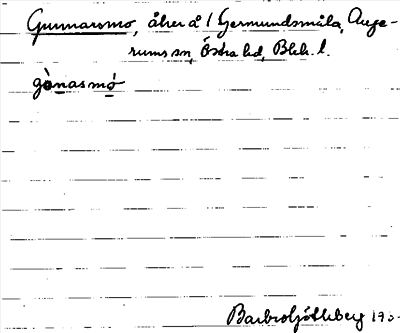 Gunnarsmo, åker å 1 Germundsmåla, Auge-
rums sn, Östra hd, Blek. l.
gònasmó
Barbro Söderberg 19